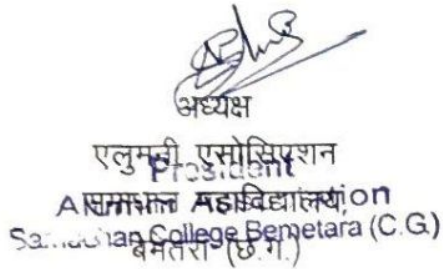 अध्यक्ष
एलुमनी एसोसिएशन
President
समाधान महाविद्यालय,
Alumni Association
Samadhan College Bemetara (C.G.)
बेमेतरा (छ.ग.)